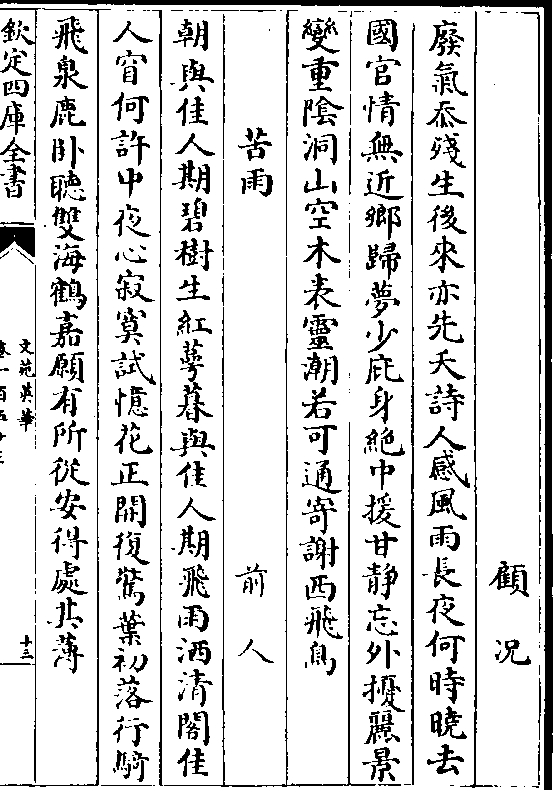 顧況
廢氣忝殘生後來亦先夭詩人感風雨長夜何時曉去
國宦情無近鄉歸夢少庇身絶中援甘静忘外擾麗景
變重陰洞山空木表靈潮若可通寄謝西飛鳥
苦雨　前人
朝與佳人期碧樹生紅萼暮與佳人期飛雨洒清閣佳
人窅何許中夜心寂寞試憶花正開復驚葉初落行騎
飛泉鹿卧聽雙海鶴嘉願有所從安得處其薄
欽定四庫全書
文苑英華
卷一百五十三
十三